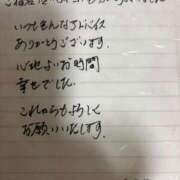 いつもきんなアドバイス
ありがとうございます。
心地よいお時間
幸せでした。
これからもよろしく
お願いいたします。